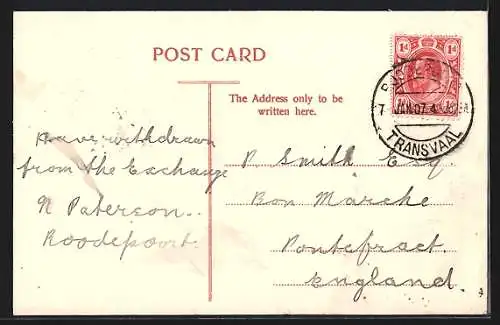 POST CARD
The Address only to be
written here.
1d 1d
7 JAN 07
TRANSVAAL
Have withdrawn
from the Exchange
N Paterson.
Roodepoort.
P Smith Esq.
Bon Marche
Pontefract.
England.